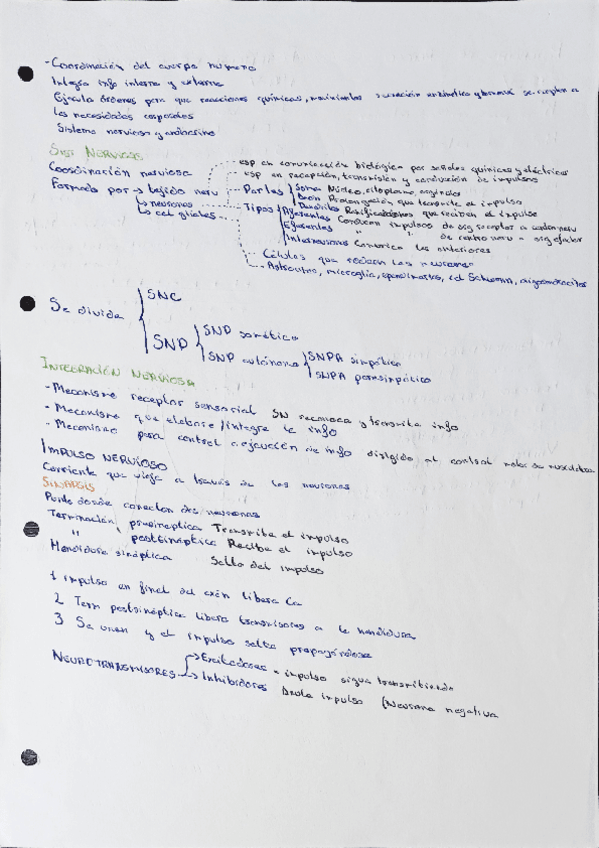 - Coordinación del cuerpo humano
Integra info interna y externa
Ejecuta órdenes para que reacciones químicas, movimientos secreción enzimática y hormonal se cumplan a
las necesidades corporales
Sistema nervioso y endocrino
SIST NERVIOSO
Coordinación nerviosa
Formado por → tejido nerv
esp en comunicación biológica por señales químicas y eléctricas
esp en recepción, transmisión y conducción de impulsos
↳ neuronas
Partes Soma Núcleo, citoplasma, orgánulos
Axón Prolongación que transmite el impulso
Dendritas Ramificaciones que reciben el impulso
Tipos Aferentes Conducen impulsos de org receptor a centro nerv
Eferentes " " de centro nerv a org efector
Interneuronas Comunica las anteriores
↳ cel gliales
Células que rodean las neuronas
Astrocitos, microglía, ependimarias, cel Schwann, oligodendrocitos
Se divide
SNC
SNP
SNP somático
SNP autónomo
SNPA simpático
SNPA parasimpático
INTEGRACIÓN NERVIOSA
- Mecanismo receptor sensorial SN reconoce y transmite info
- Mecanismo que elabora/integra la info
- Mecanismo para control o ejecución de info dirigido al control motor
IMPULSO NERVIOSO
Corriente que viaja a través de las neuronas
SINAPSIS
Punto donde conectan dos neuronas
Terminación presináptica Transmite el impulso
" postsináptica Recibe el impulso
Hendidura sináptica Salto del impulso
1 impulso en final del axón libera Ca
2 Term postsináptica libera transmisores a la hendidura
3 Se unen y el impulso salta propagándose
NEUROTRANSMISORES → Excitadores - impulso sigue transmitiendo
→ Inhibidores Anula impulso (Neurona negativa